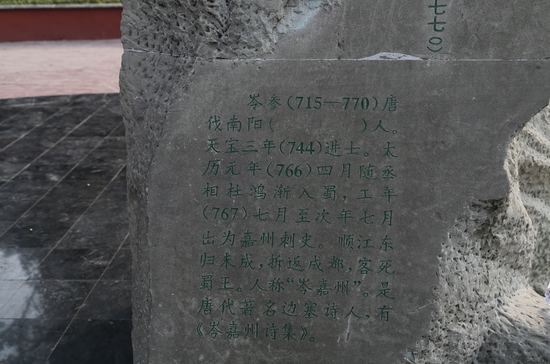 七七〇)
岑参(715—770)唐
伐南阳(　　　　)人。
天宝三年(744)进士。太
历元年(766)四月随丞
相杜鸿渐入蜀，工年
(767)七月至次年七月
出为嘉州刺史。顺江东
归未成，折返成都，客死
蜀王。人称“岑嘉州”。是
唐代著名边塞诗人，有
《岑嘉州诗集》。